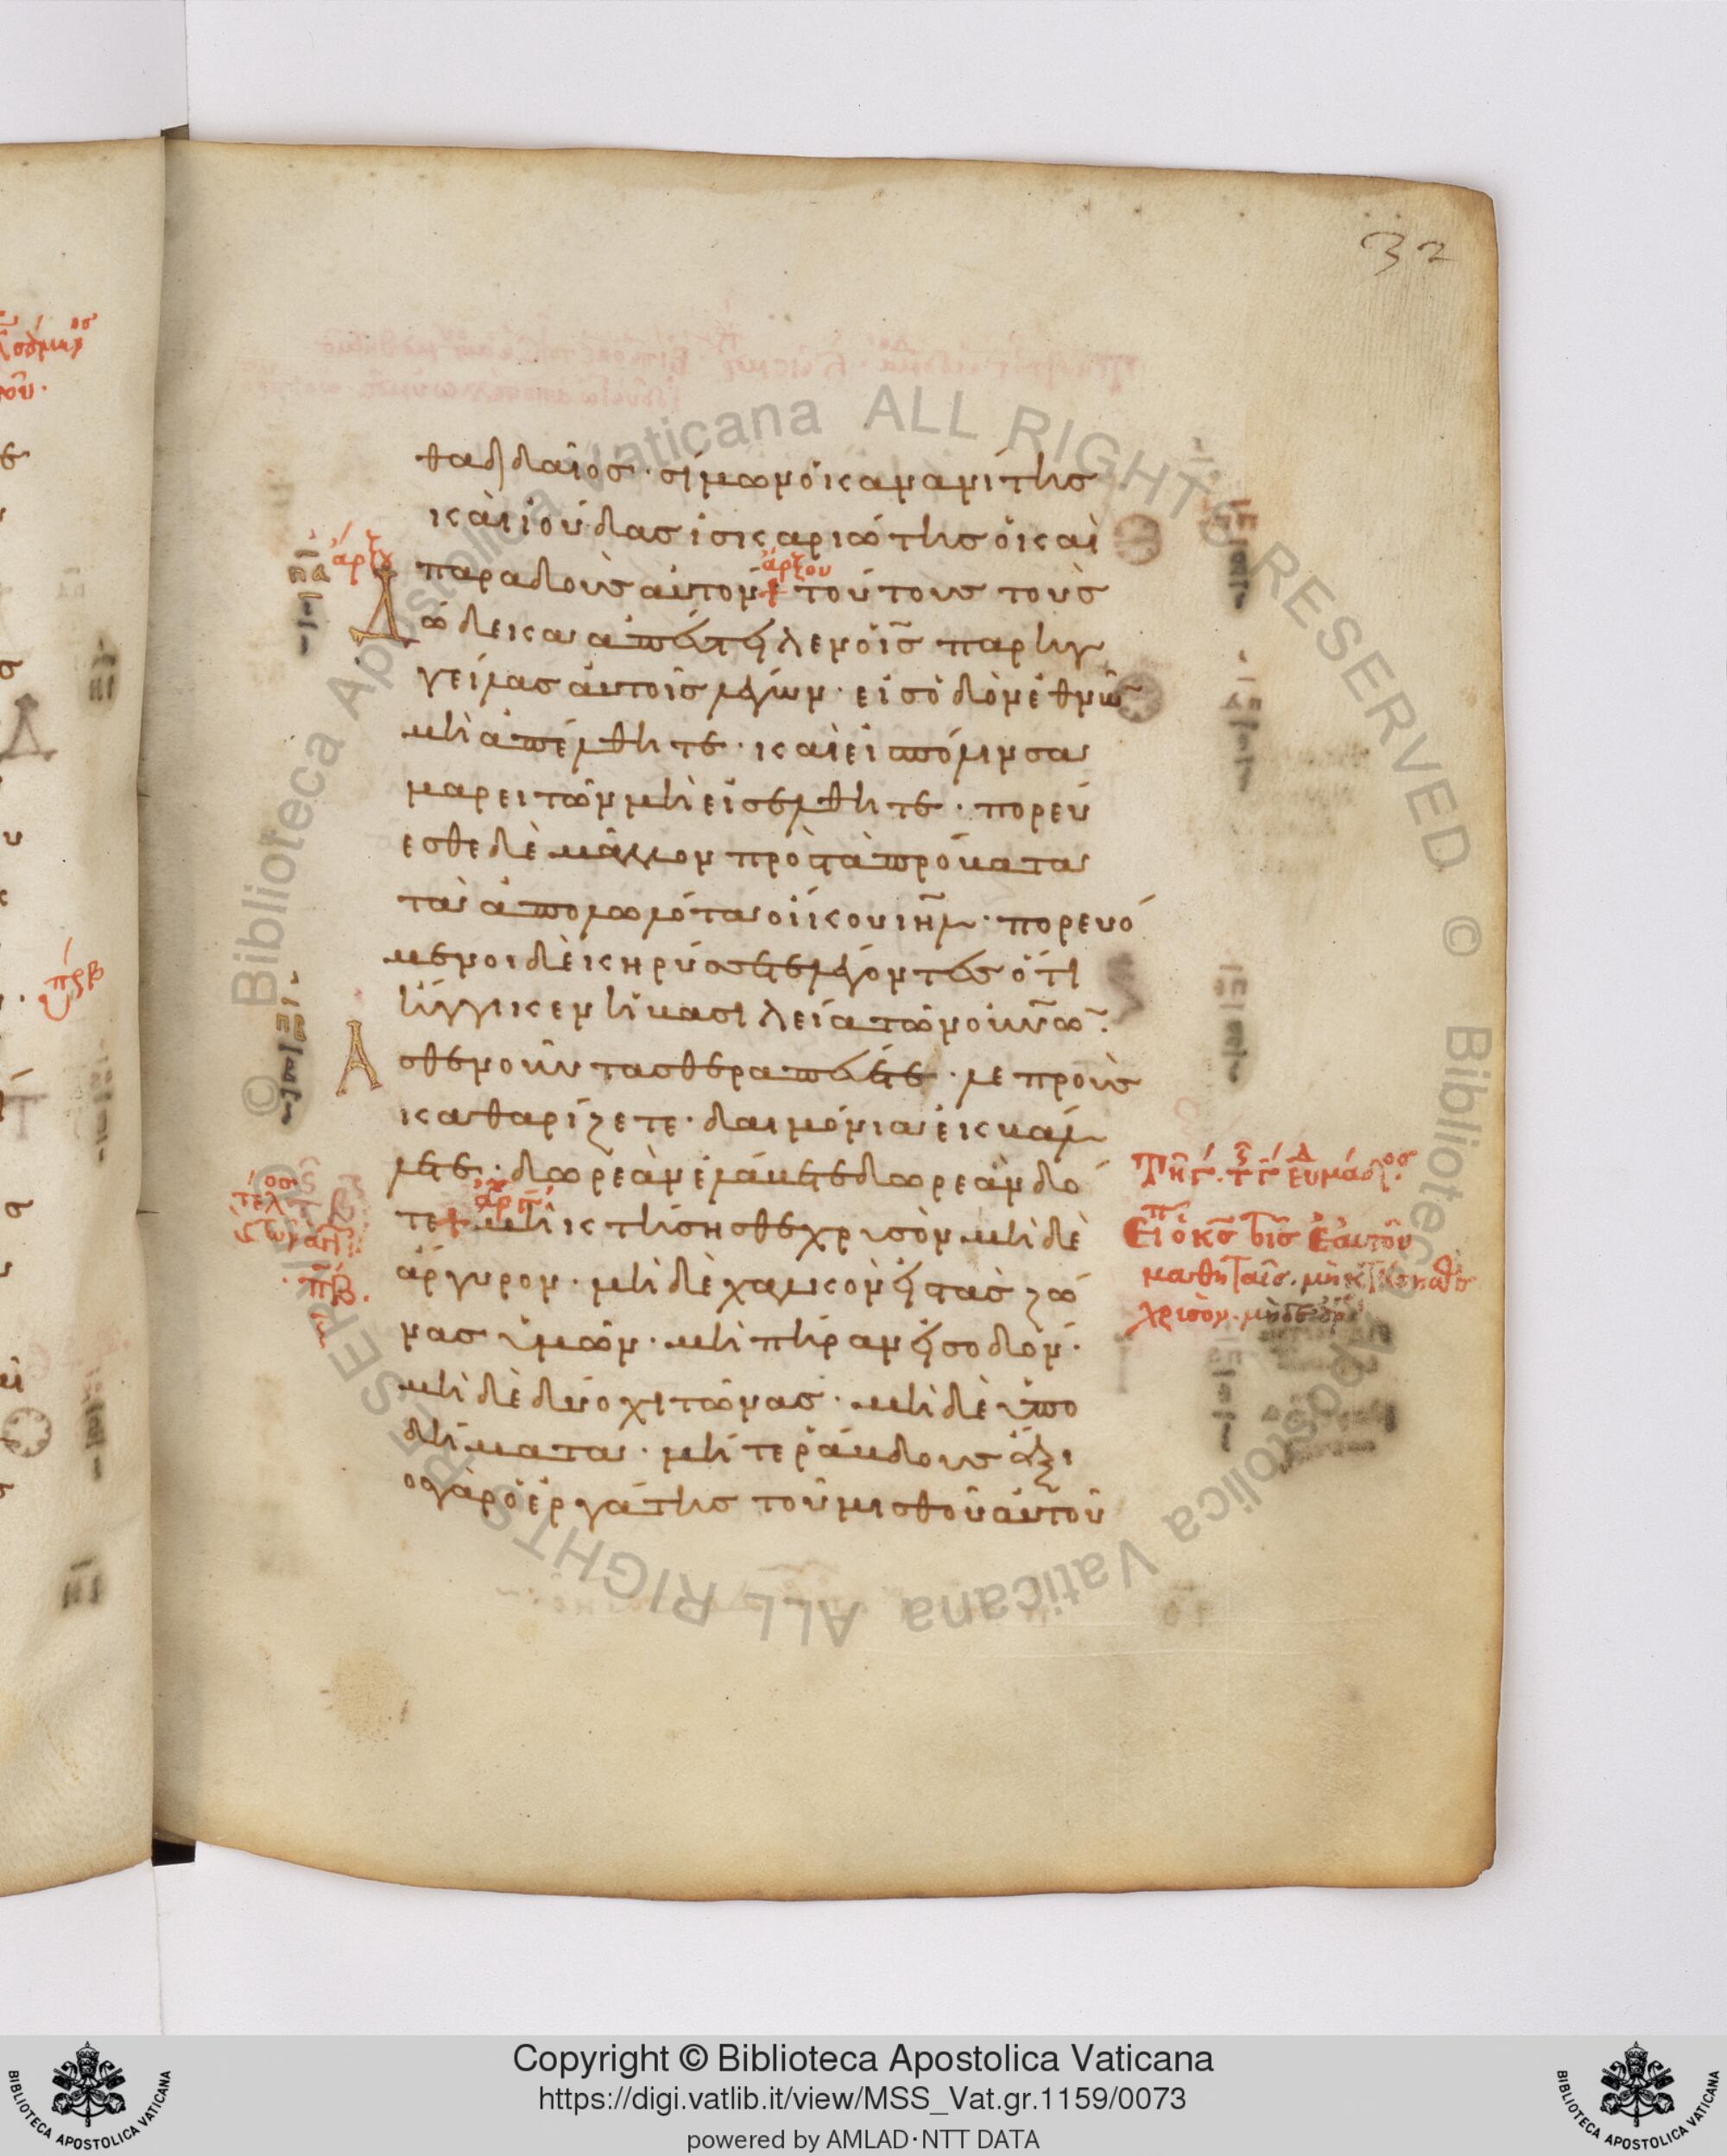 32
θαδδαῖος· σίμων ὁ κανανίτης
καὶ ἰούδας ἰσκαριώτης ὁ καὶ
παραδοὺς αὐτόν τούτους τοὺς
ἄρξου
Δώδεκα ἀπέστειλεν ὁ ἰς παρηγ
γείλας αὐτοῖς λέγων· εἰς ὁδὸν ἐθνῶ
μὴ ἀπέλθητε· καὶ εἰς πόλιν σα
μαρειτῶν μὴ εἰσέλθητε· πορεύ
εσθε δὲ μᾶλλον πρὸς τὰ πρόβατα
τὰ ἀπολωλότα οἴκου ιηλ· πορευό
μενοι δὲ κηρύσσετε λέγοντες ὅτι
ἤγγικεν ἡ βασιλεία τῶν οὐνῶ·
Ασθενοῦντας θεραπεύετε· λεπροὺς
καθαρίζετε· δαιμόνια ἐκβάλ
λετε· δωρεὰν ἐλάβετε δωρεὰν δό
τε μὴ κτήσησθε χρυσὸν μὴ δὲ
ἄργυρον· μὴ δὲ χαλκὸν εἰς τὰς ζώ
νας ὑμῶν· μὴ πήραν εἰς ὁδόν·
μὴ δὲ δύο χιτῶνας· μὴ δὲ ὑπο
δήματα· μήτε ῥάβδους ἄξι
ος γὰρ ὁ ἐργάτης τοῦ μισθοῦ αὐτοῦ
Εἶ ὁ κς τοῖς ἑαυτοῦ
μαθηταῖς· μὴ κτήσησθε
χρυσὸν·
Copyright © Biblioteca Apostolica Vaticana
https://digi.vatlib.it/view/MSS_Vat.gr.1159/0073
powered by AMLAD·NTT DATA
BIBLIOTECA APOSTOLICA VATICANA
BIBLIOTECA APOSTOLICA VATICANA
© Biblioteca Apostolica Vaticana ALL RIGHTS RESERVED
© Biblioteca Apostolica Vaticana ALL RIGHTS RESERVED